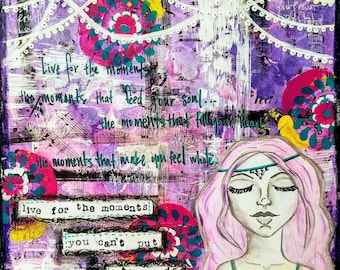 Live for the moments
the moments that feed your soul...
the moments that fill your heart
the moments that make you feel whole
live for the moments
you can't put